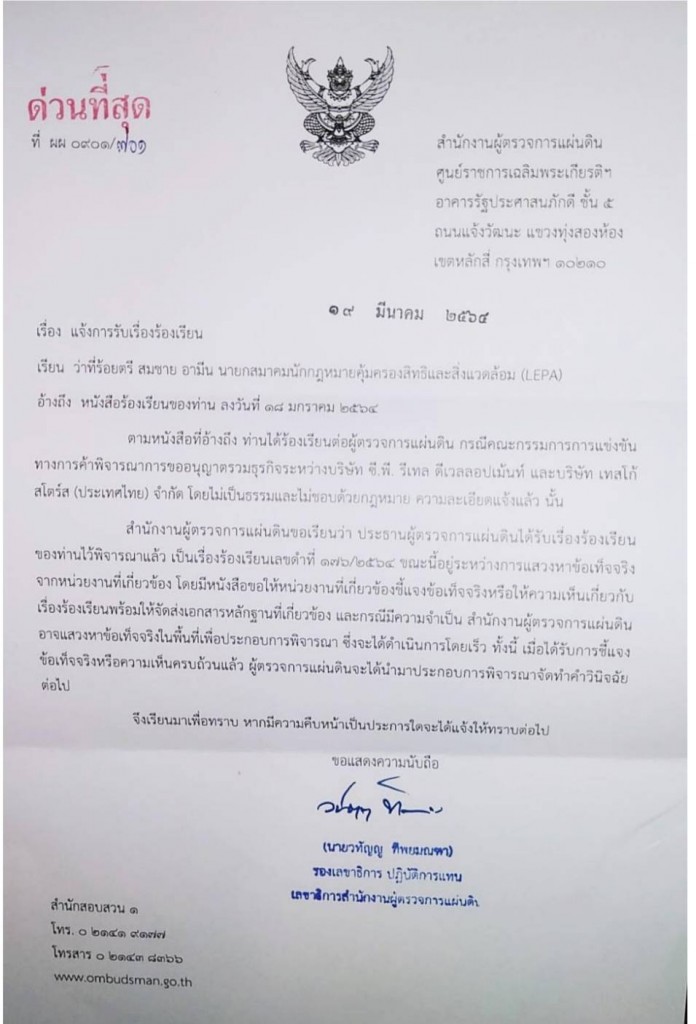 ด่วนที่สุด
ที่ ผผ ๐๙๐๑/๗๐๑
สำนักงานผู้ตรวจการแผ่นดิน
ศูนย์ราชการเฉลิมพระเกียรติฯ
อาคารรัฐประศาสนภักดี ชั้น ๕
ถนนแจ้งวัฒนะ แขวงทุ่งสองห้อง
เขตหลักสี่ กรุงเทพฯ ๑๐๒๑๐
๑๙ มีนาคม ๒๕๖๔
เรื่อง แจ้งการรับเรื่องร้องเรียน
เรียน ว่าที่ร้อยตรี สมชาย อามีน นายกสมาคมนักกฎหมายคุ้มครองสิทธิและสิ่งแวดล้อม (LEPA)
อ้างถึง หนังสือร้องเรียนของท่าน ลงวันที่ ๑๘ มกราคม ๒๕๖๔
ตามหนังสือที่อ้างถึง ท่านได้ร้องเรียนต่อผู้ตรวจการแผ่นดิน กรณีคณะกรรมการการแข่งขัน
ทางการค้าพิจารณาการขออนุญาตรวมธุรกิจระหว่างบริษัท ซี.พี. รีเทล ดีเวลลอปเม้นท์ และบริษัท เทสโก้
สโตร์ส (ประเทศไทย) จำกัด โดยไม่เป็นธรรมและไม่ชอบด้วยกฎหมาย ความละเอียดแจ้งแล้ว นั้น
สำนักงานผู้ตรวจการแผ่นดินขอเรียนว่า ประธานผู้ตรวจการแผ่นดินได้รับเรื่องร้องเรียน
ของท่านไว้พิจารณาแล้ว เป็นเรื่องร้องเรียนเลขดำที่ ๑๗๖/๒๕๖๔ ขณะนี้อยู่ระหว่างการแสวงหาข้อเท็จจริง
จากหน่วยงานที่เกี่ยวข้อง โดยมีหนังสือขอให้หน่วยงานที่เกี่ยวข้องชี้แจงข้อเท็จจริงหรือให้ความเห็นเกี่ยวกับ
เรื่องร้องเรียนพร้อมให้จัดส่งเอกสารหลักฐานที่เกี่ยวข้อง และกรณีมีความจำเป็น สำนักงานผู้ตรวจการแผ่นดิน
อาจแสวงหาข้อเท็จจริงในพื้นที่เพื่อประกอบการพิจารณา ซึ่งจะได้ดำเนินการโดยเร็ว ทั้งนี้ เมื่อได้รับการชี้แจง
ข้อเท็จจริงหรือความเห็นครบถ้วนแล้ว ผู้ตรวจการแผ่นดินจะได้นำมาประกอบการพิจารณาจัดทำคำวินิจฉัย
ต่อไป
จึงเรียนมาเพื่อทราบ หากมีความคืบหน้าเป็นประการใดจะได้แจ้งให้ทราบต่อไป
ขอแสดงความนับถือ
(นายวทัญญู ทิพยมณฑา)
รองเลขาธิการ ปฏิบัติการแทน
เลขาธิการสำนักงานผู้ตรวจการแผ่นดิน
สำนักสอบสวน ๑
โทร. ๐ ๒๑๔๑ ๙๑๗๗
โทรสาร ๐ ๒๑๔๓ ๘๓๖๖
www.ombudsman.go.th